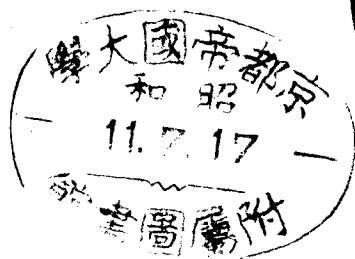 京都帝國大學
昭和
11.7.17
附屬圖書館